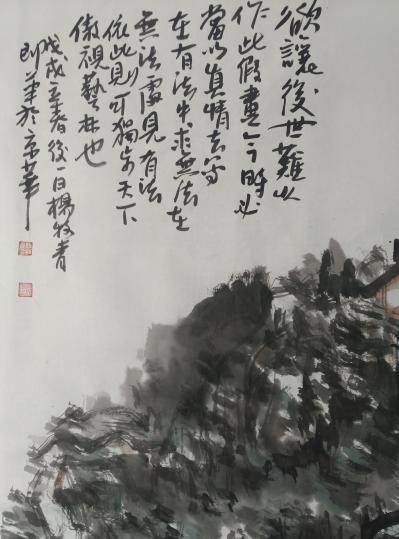 欲讓後世難以
作此假畫今時必
當以真情去寫
在有法中求無法在
無法處見有法
依此則可獨步天下
傲視藝林也
戊戌立春後一日楊牧青
即筆於京華